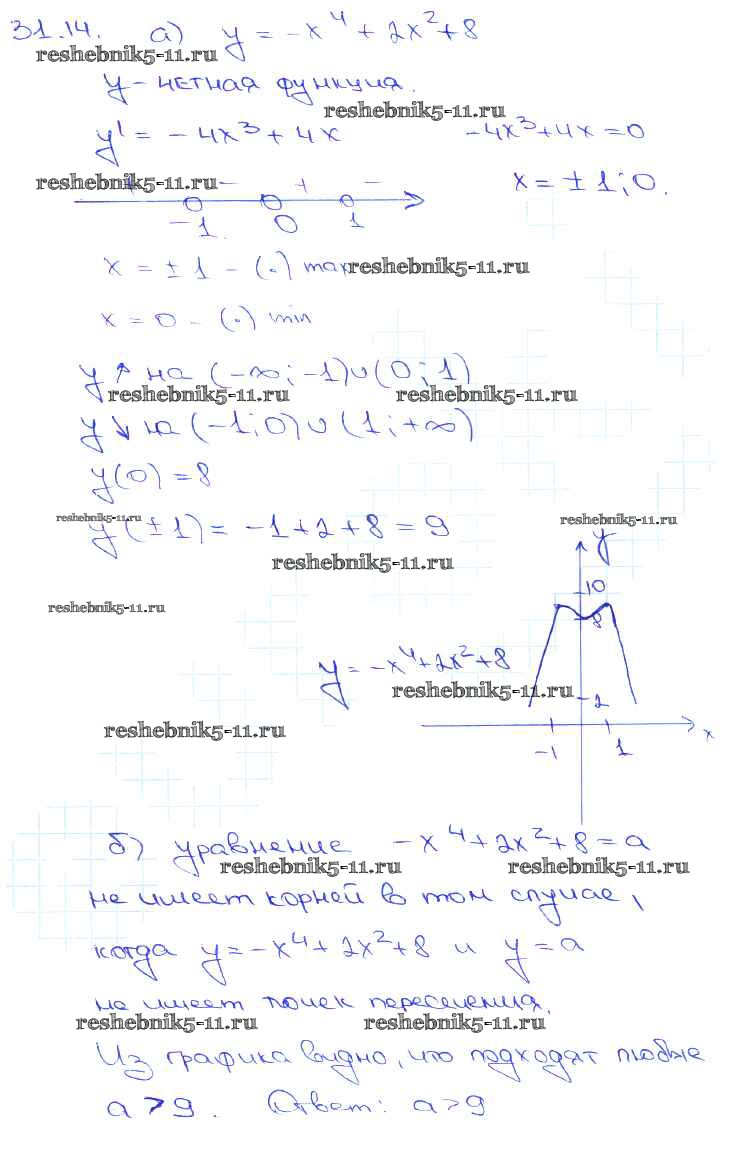 31.14. а) y = -x⁴ + 2x² + 8
reshebnik5-11.ru
y - четная функция.
reshebnik5-11.ru
y' = -4x³ + 4x -4x³+4x=0
reshebnik5-11.ru
+ - + -
x = ±1; 0.
-1 0 1
x = ±1 - (·) max
reshebnik5-11.ru
x = 0 - (·) min
y ↑ на (-∞; -1)∪(0; 1)
reshebnik5-11.ru reshebnik5-11.ru
y ↓ на (-1; 0)∪(1; +∞)
y(0) = 8
reshebnik5-11.ru reshebnik5-11.ru
y(±1) = -1+2+8 = 9
reshebnik5-11.ru
y
10
reshebnik5-11.ru
8
y = -x⁴+2x²+8
reshebnik5-11.ru
2
reshebnik5-11.ru
x
-1 1
б) уравнение -x⁴+2x²+8=a
reshebnik5-11.ru reshebnik5-11.ru
не имеет корней в том случае,
когда y=-x⁴+2x²+8 и y=a
не имеет точек пересечения.
reshebnik5-11.ru reshebnik5-11.ru
Из графика видно, что подходят любые
a > 9. Ответ: a>9